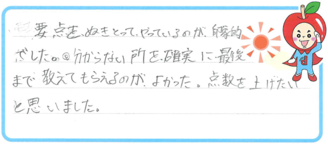 要点をぬきとって、やっているのが、効率的
でした。@分からない所を確実に最後
まで教えてもらえるのが、よかった。点数を上げたい
と思いました。